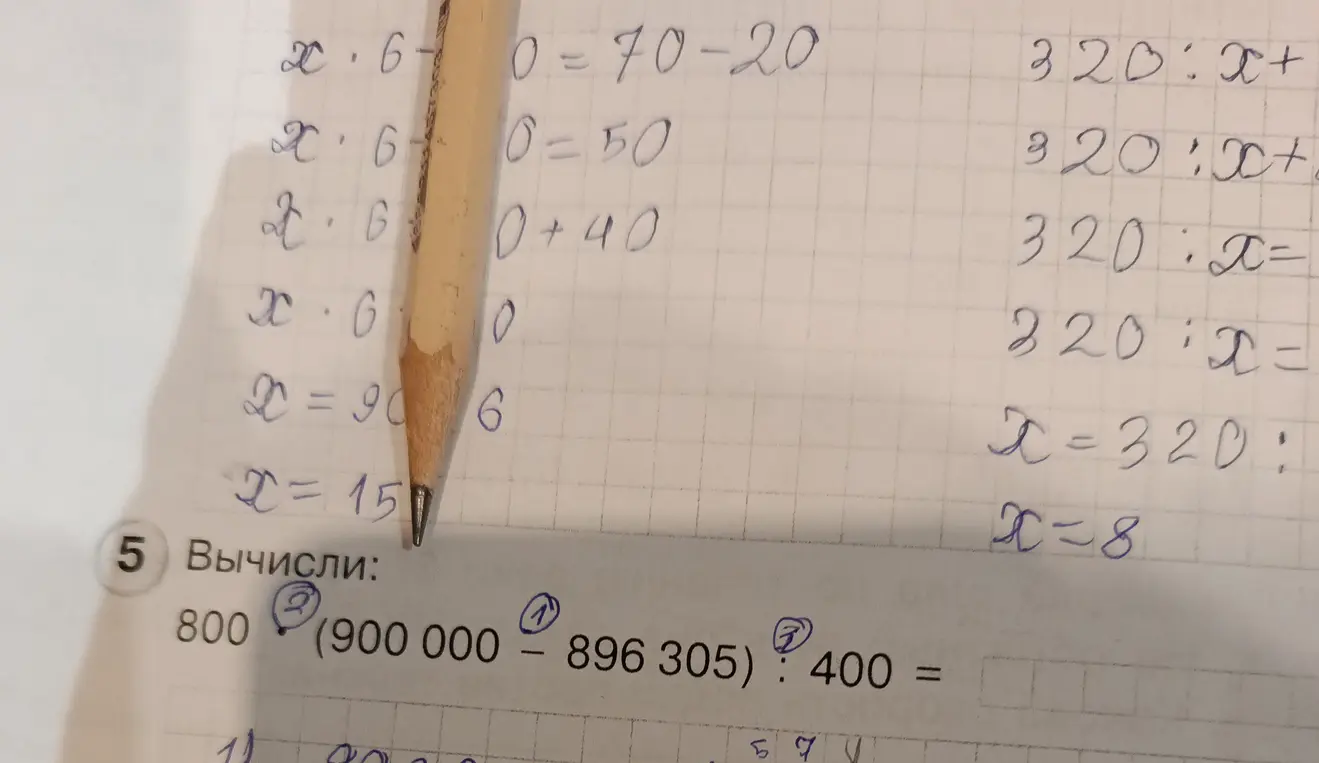 x · 6 - 0 = 70 - 20
x · 6 - 0 = 50
x · 6 0 + 40
x · 6 0
x = 90 6
x = 15
320 : x +
320 : x +
320 : x =
320 : x =
x = 320 :
x = 8
5 Вычисли:
2 1 3
800 · (900 000 – 896 305) : 400 =
1)
5 7 4